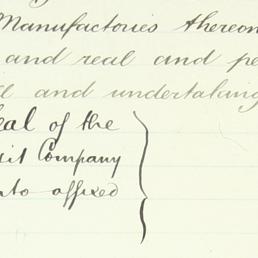 Manufactories thereon
and real and pe
and undertaking
eal of the
sit Company
nto affixed